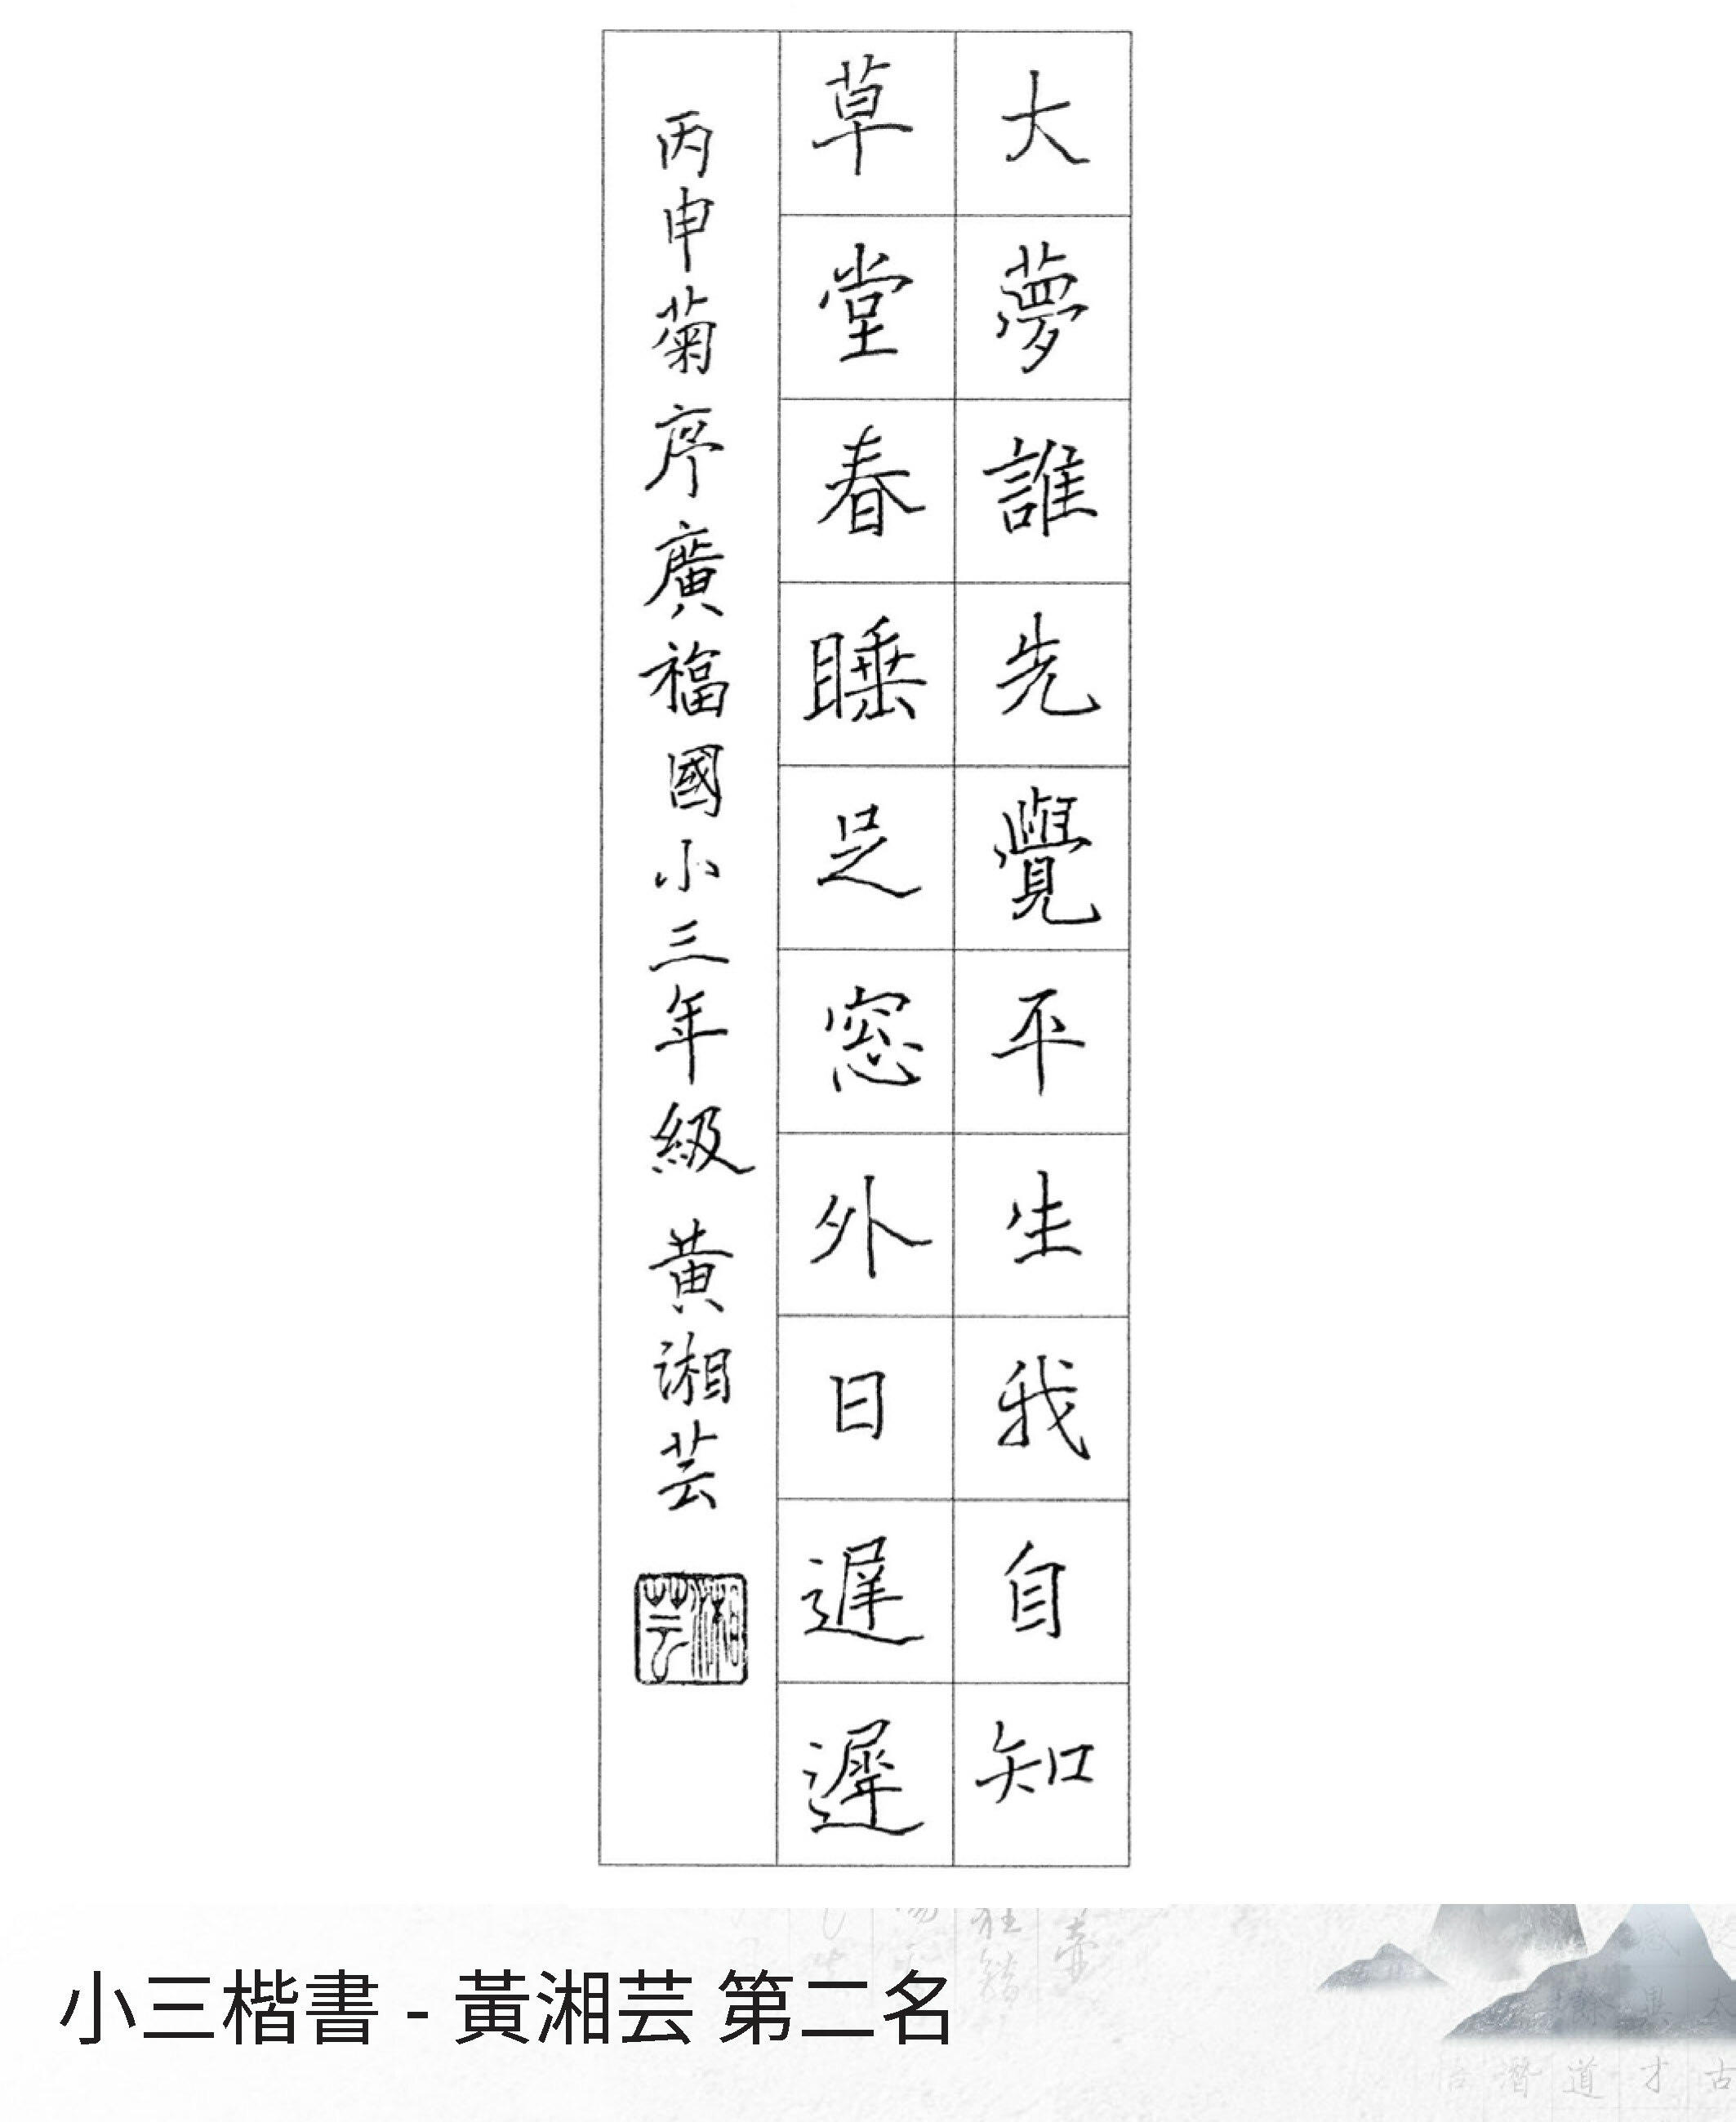 大夢誰先覺平生我自知
草堂春睡足窓外日遲遲
丙申菊序廣福國小三年級 黃湘芸
湘芸
小三楷書 - 黃湘芸 第二名